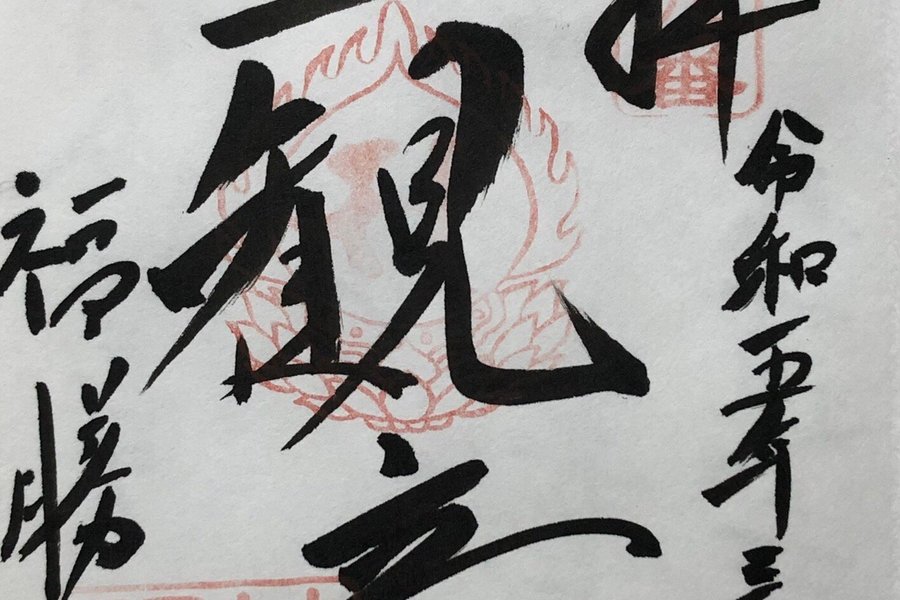 拝
令和五年三
観音
福勝